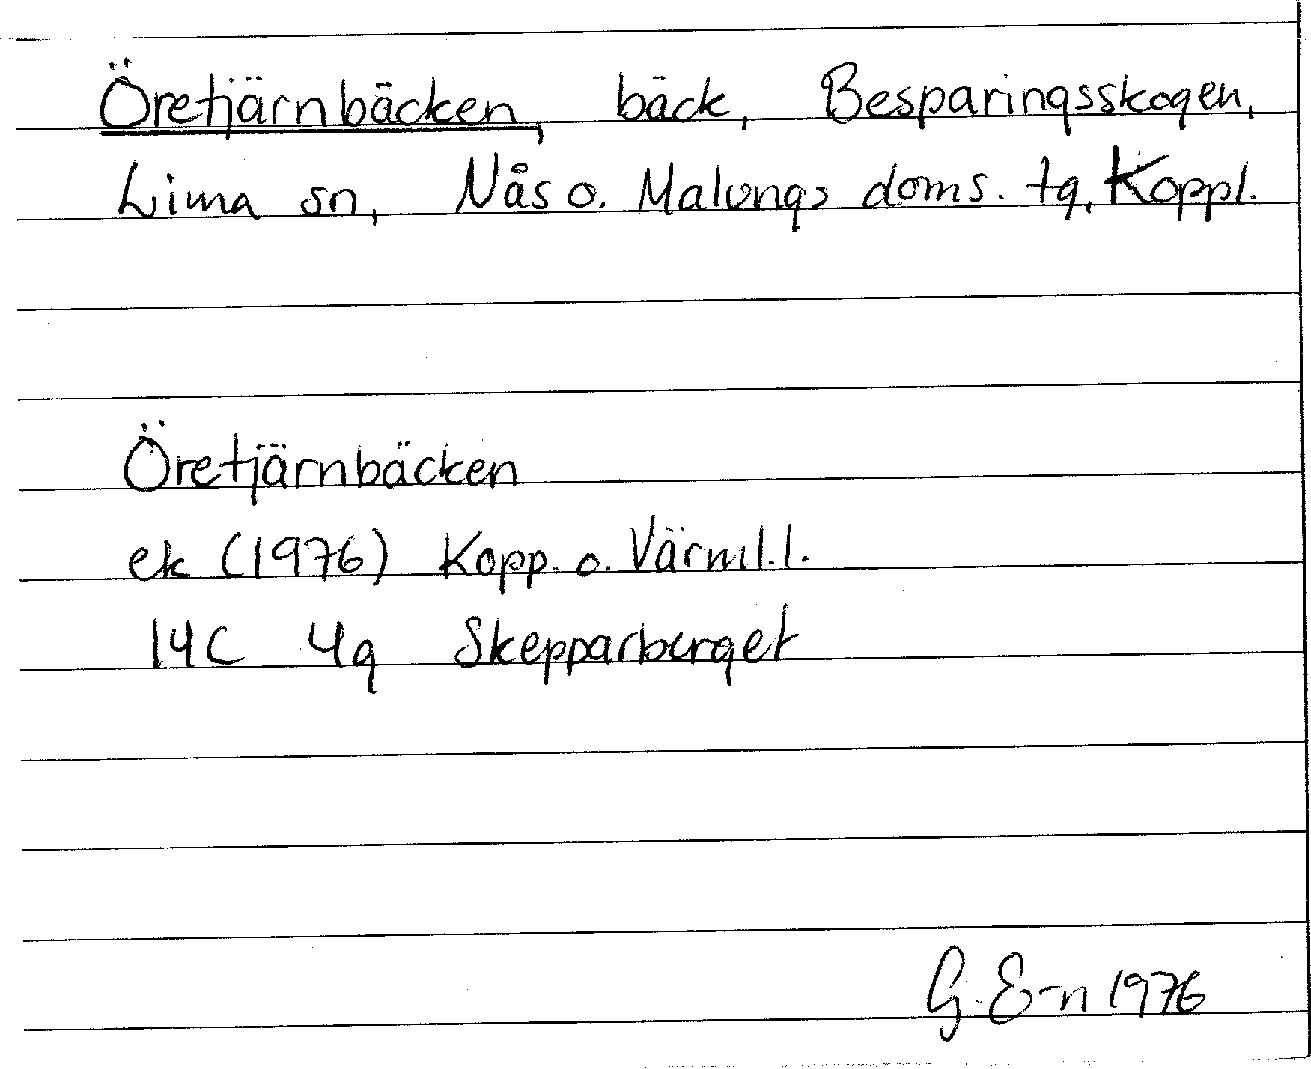 Öretjärnbäcken, bäck, Besparingsskogen,
Lima sn, Nås o. Malungs doms. tg, Koppl.
Öretjärnbäcken
ek (1976) Kopp. o. Värml.l.
14C 4g Skepparberget
G. E-n 1976